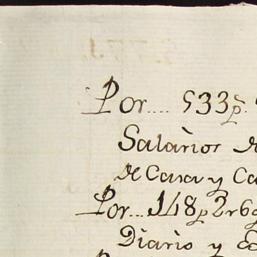 Por.... 533p.
Salarios de
de Casa y Ca
Por... 148p 2r 6g
Diario y